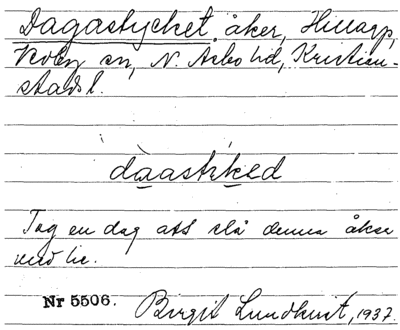 Dagastycket åker, Hillarp,
Röby sn, N. Åsbo hd, Kristian-
stads l.
dàastikęd
Tog en dag att slå denna åker
med lie.
Nr 5506. Birgit Lundkvist, 1937.